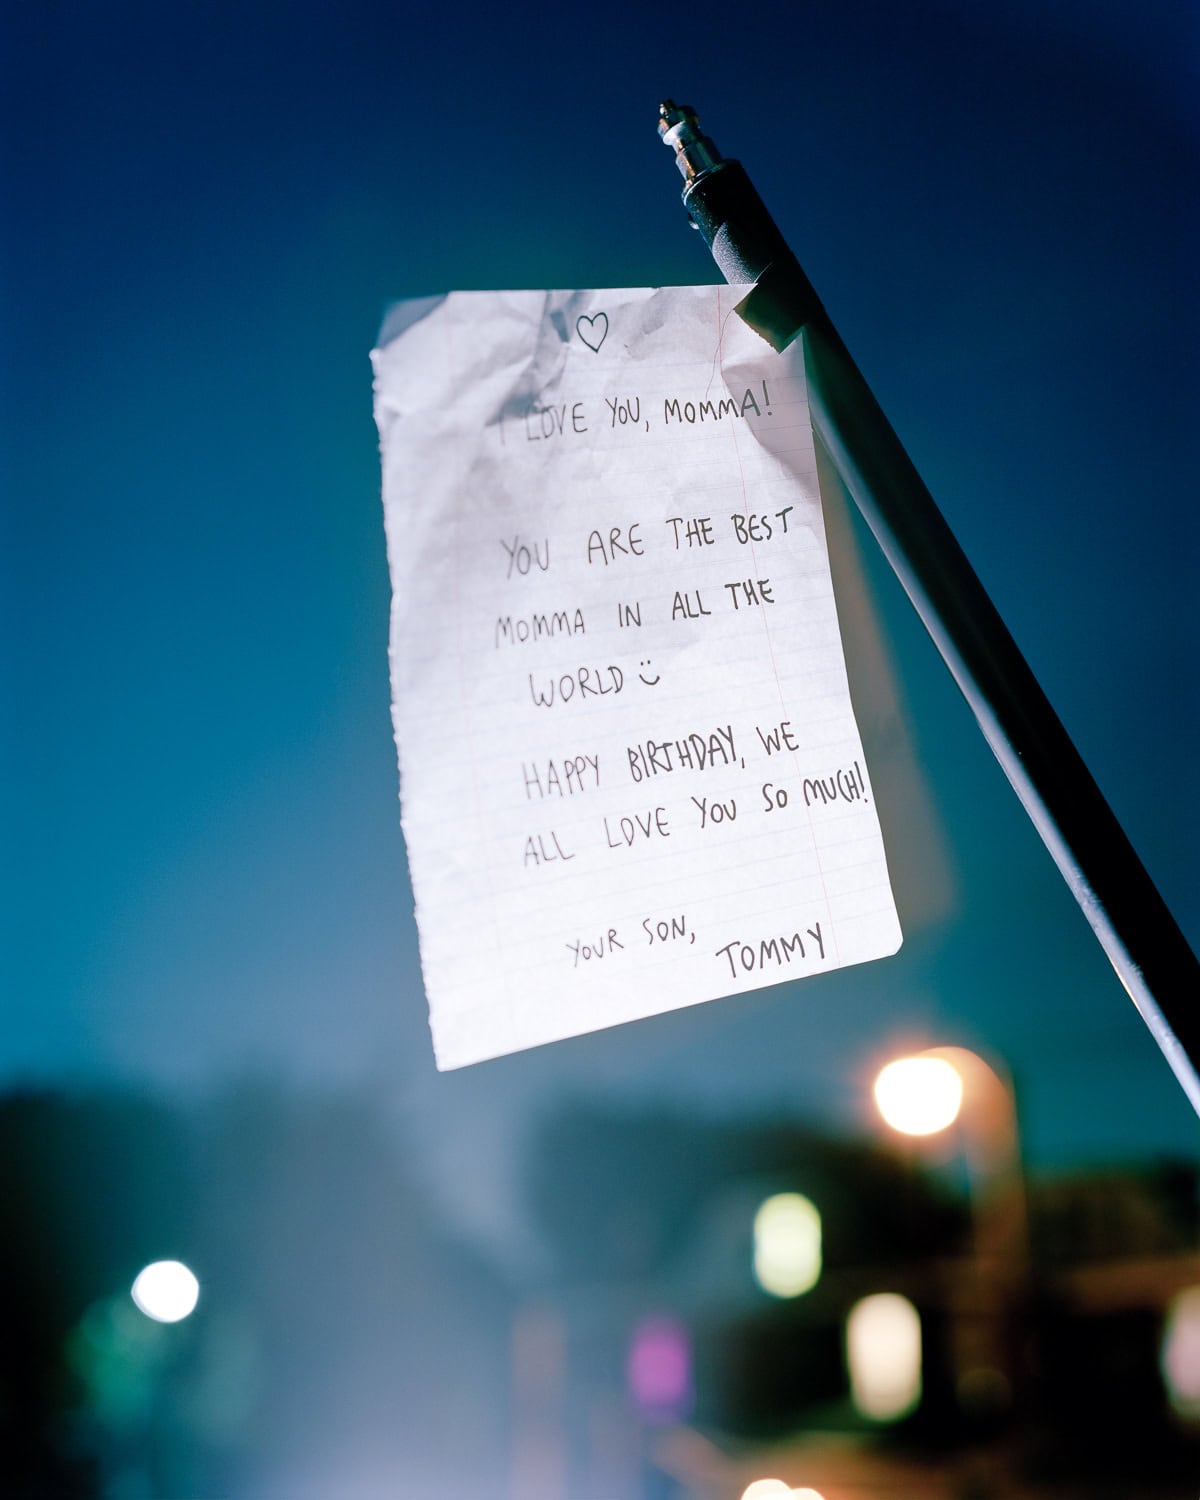 I LOVE YOU, MOMMA!
YOU ARE THE BEST
MOMMA IN ALL THE
WORLD
HAPPY BIRTHDAY, WE
ALL LOVE YOU SO MUCH!
YOUR SON,
TOMMY